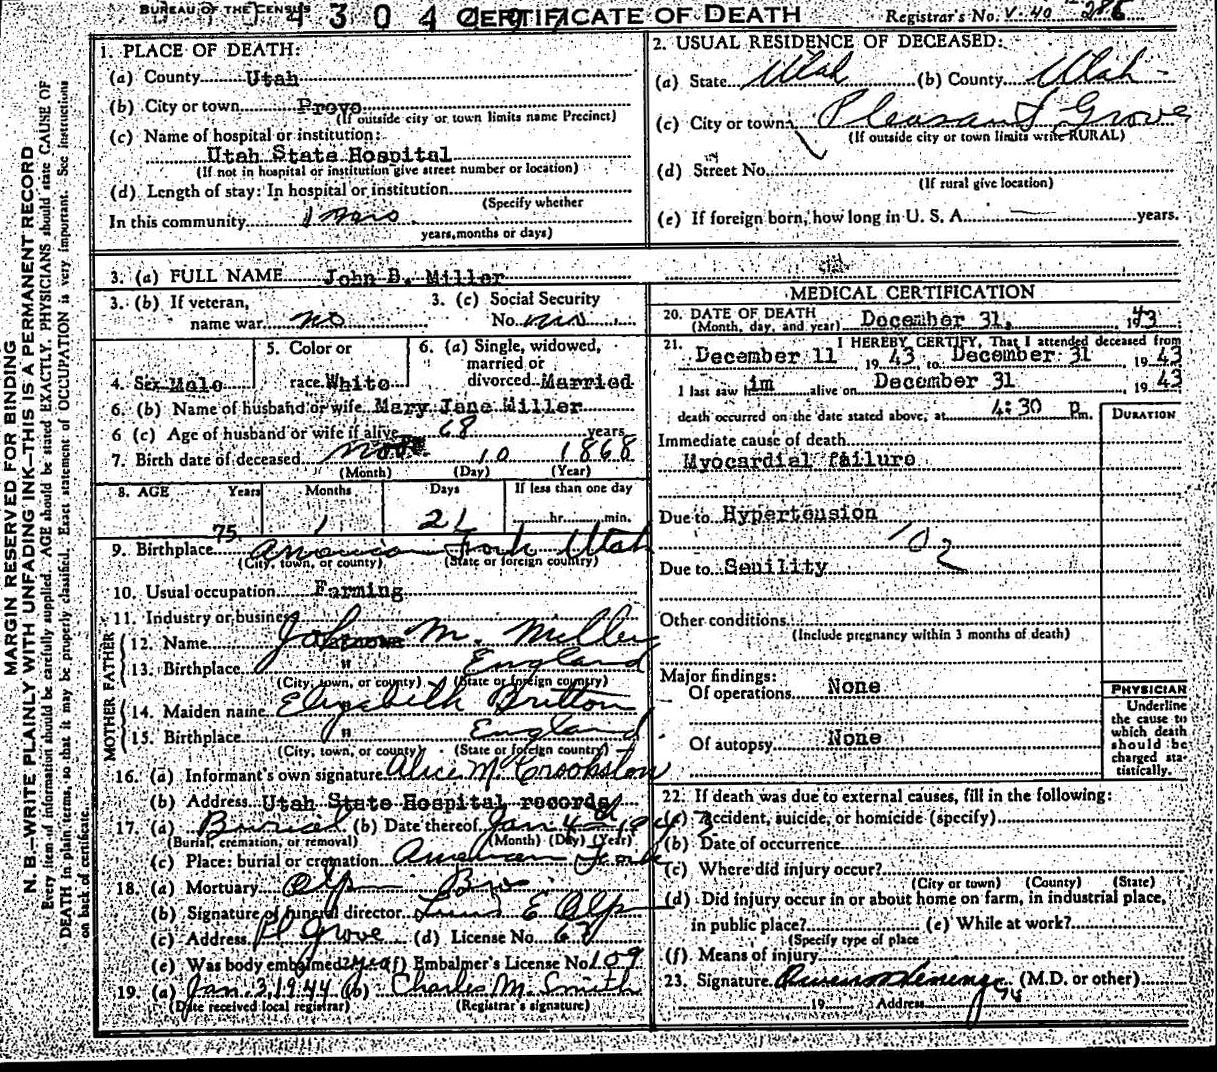 BUREAU OF THE CENSUS
4 3 0 4
CERTIFICATE OF DEATH
Registrar's No. V-40 286
MARGIN RESERVED FOR BINDING
N. B.—WRITE PLAINLY WITH UNFADING INK—THIS IS A PERMANENT RECORD
Every item of information should be carefully supplied. AGE should be stated EXACTLY. PHYSICIANS should state CAUSE OF
DEATH in plain terms, so that it may be properly classified. Exact statement of OCCUPATION is very important. See instructions
on back of certificate.
1. PLACE OF DEATH:
(a) County Utah
(b) City or town Provo
(If outside city or town limits name Precinct)
(c) Name of hospital or institution:
Utah State Hospital
(If not in hospital or institution give street number or location)
(d) Length of stay: In hospital or institution
(Specify whether
In this community
years, months or days)
2. USUAL RESIDENCE OF DECEASED:
(a) State Utah (b) County Utah
(c) City or town Pleasant Grove
(If outside city or town limits write RURAL)
(d) Street No.
(If rural give location)
(e) If foreign born, how long in U. S. A. — years.
3. (a) FULL NAME John B. Miller
3. (b) If veteran,
name war no
3. (c) Social Security
No.
4. Sex Male
5. Color or
race White
6. (a) Single, widowed,
married or
divorced Married
6. (b) Name of husband or wife Mary Jane Miller
6 (c) Age of husband or wife if alive 68 years
7. Birth date of deceased Nov. 10 1868
(Month) (Day) (Year)
8. AGE Years Months Days If less than one day
75 1 21 hr. min.
9. Birthplace American Fork Utah
(City, town, or county) (State or foreign country)
10. Usual occupation Farming
11. Industry or business
FATHER
12. Name John M. Miller
13. Birthplace " England
(City, town, or county) (State or foreign country)
MOTHER
14. Maiden name Elizabeth Britton
15. Birthplace " England
(City, town, or county) (State or foreign country)
16. (a) Informant's own signature Alice M. Crookston
(b) Address Utah State Hospital records
17. (a) Burial (b) Date thereof Jan 4 - 194
(Burial, cremation, or removal) (Month) (Day) (Year)
(c) Place: burial or cremation American Fork
18. (a) Mortuary Olpin Bros
(b) Signature of funeral director E Olpin
(c) Address Pl Grove (d) License No. 67
(e) Was body embalmed? yes (f) Embalmer's License No. 109
19. (a) Jan. 3, 1944 (b) Charles M. Smith
(Date received local registrar) (Registrar's signature)
MEDICAL CERTIFICATION
20. DATE OF DEATH
(Month, day, and year) December 31, 1943
21. I HEREBY CERTIFY, That I attended deceased from
December 11, 1943 to December 31, 1943
I last saw him alive on December 31 1943
death occurred on the date stated above, at 4:30 p.m.
DURATION
Immediate cause of death
Myocardial failure
Due to Hypertension
102
Due to Senility
Other conditions
(Include pregnancy within 3 months of death)
Major findings:
Of operations None
Of autopsy None
PHYSICIAN
Underline
the cause to
which death
should be
charged sta-
tistically.
22. If death was due to external causes, fill in the following:
(a) Accident, suicide, or homicide (specify)
(b) Date of occurrence
(c) Where did injury occur?
(City or town) (County) (State)
(d) Did injury occur in or about home on farm, in industrial place,
in public place? (e) While at work?
(Specify type of place
(f) Means of injury
23. Signature (M.D. or other)
19 Address